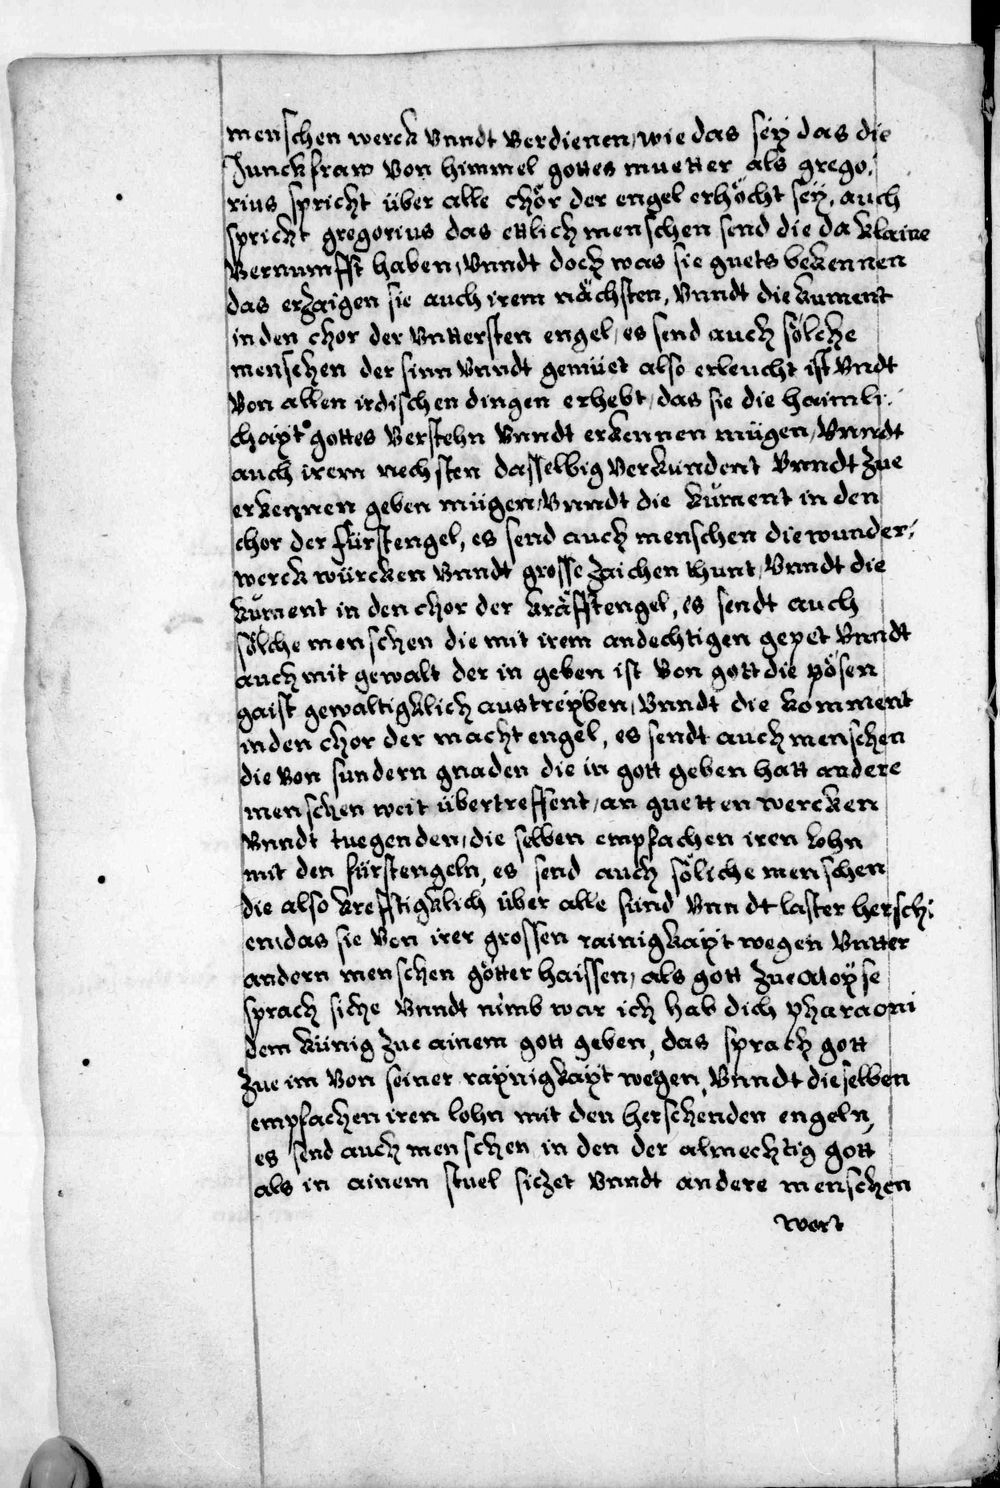 menschen werck vnndt verdienen, wie das seÿ das die
Junckfraw von himmel gottes muetter als grego:
rius spricht über alle chör der engel erhöcht seÿ, auch
spricht gregorius das ettlich menschen send die da klaine
vernumfft haben, vnndt doch was sie guets bekennen
das erzaigen sie auch irem nächsten, vnndt die kument
in den chor der vnttersten engel, es send auch sölche
menschen der sinn vnndt gemüet also erleucht ist vndt
von allen irdischen dingen erhebt, das sie die haimli:
chaÿt gottes verstehn vnndt erkennen mügen, vnndt
auch irem nechsten dasselbig verkundent vnndt zue
erkennen geben mügen, vnndt die kument in den
chor der fürstengel, es send auch menschen die wunder:
werck würcken vnndt grosse zaichen thunt, vnndt die
kument in den chor der kräfftengel, es sendt auch
sölche menschen die mit irem andechtigen gepet vnndt
auch mit gewalt der in geben ist von gott die pösen
gaist gewaltigklich austreÿben, vnndt die komment
in den chor der macht engel, es sendt auch menschen
die von sundern gnaden die in gott geben hatt andere
menschen weit übertreffent, an guetten wercken
vnndt tuegenden, die selben empfachen iren lohn
mit den fürstengeln, es send auch söliche menschen
die also krefftigklich über alle sünd vnndt laster herschi
en, das sie von irer grossen rainigkaÿt wegen vntter
andern menschen götter haissen, als gott zue Moÿse
sprach siche vnndt nimb war ich hab dich pharaoni
dem künig zue ainem gott geben, das sprach gott
zue im von seiner raÿnigkaÿt wegen, vnndt dieselben
empfachen iren lohn mit den herschenden engeln,
es send auch menschen in den der almechtig gott
als in ainem stuel siczet vnndt andere menschen
wert